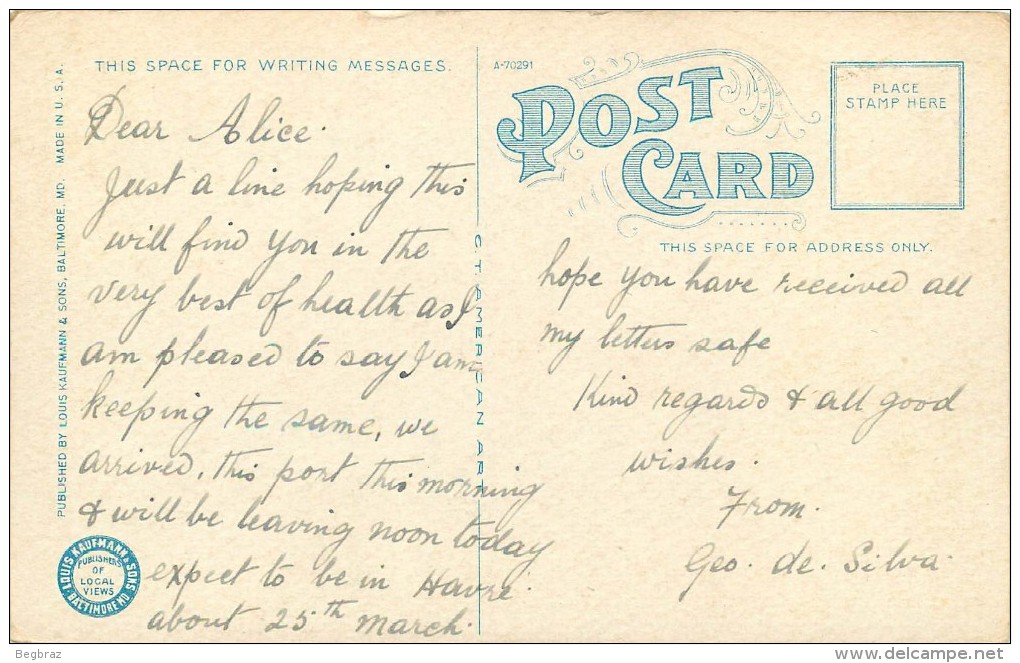 THIS SPACE FOR WRITING MESSAGES.
Dear Alice.
Just a line hoping this
will find you in the
very best of health as I
am pleased to say I am
keeping the same, we
arrived, this port this morning
& will be leaving noon today
expect to be in Havre
about 25th march.
A-70291
POST
CARD
PLACE
STAMP HERE
THIS SPACE FOR ADDRESS ONLY.
hope you have received all
my letters safe
Kind regards & all good
wishes.
From.
Geo. de. Silva
PUBLISHED BY LOUIS KAUFMANN & SONS, BALTIMORE, MD. MADE IN U. S. A.
C. T. AMERICAN ART
LOUIS KAUFMANN & SONS
PUBLISHERS
OF
LOCAL
VIEWS
BALTIMORE MD.
Begbraz
delcampe.net